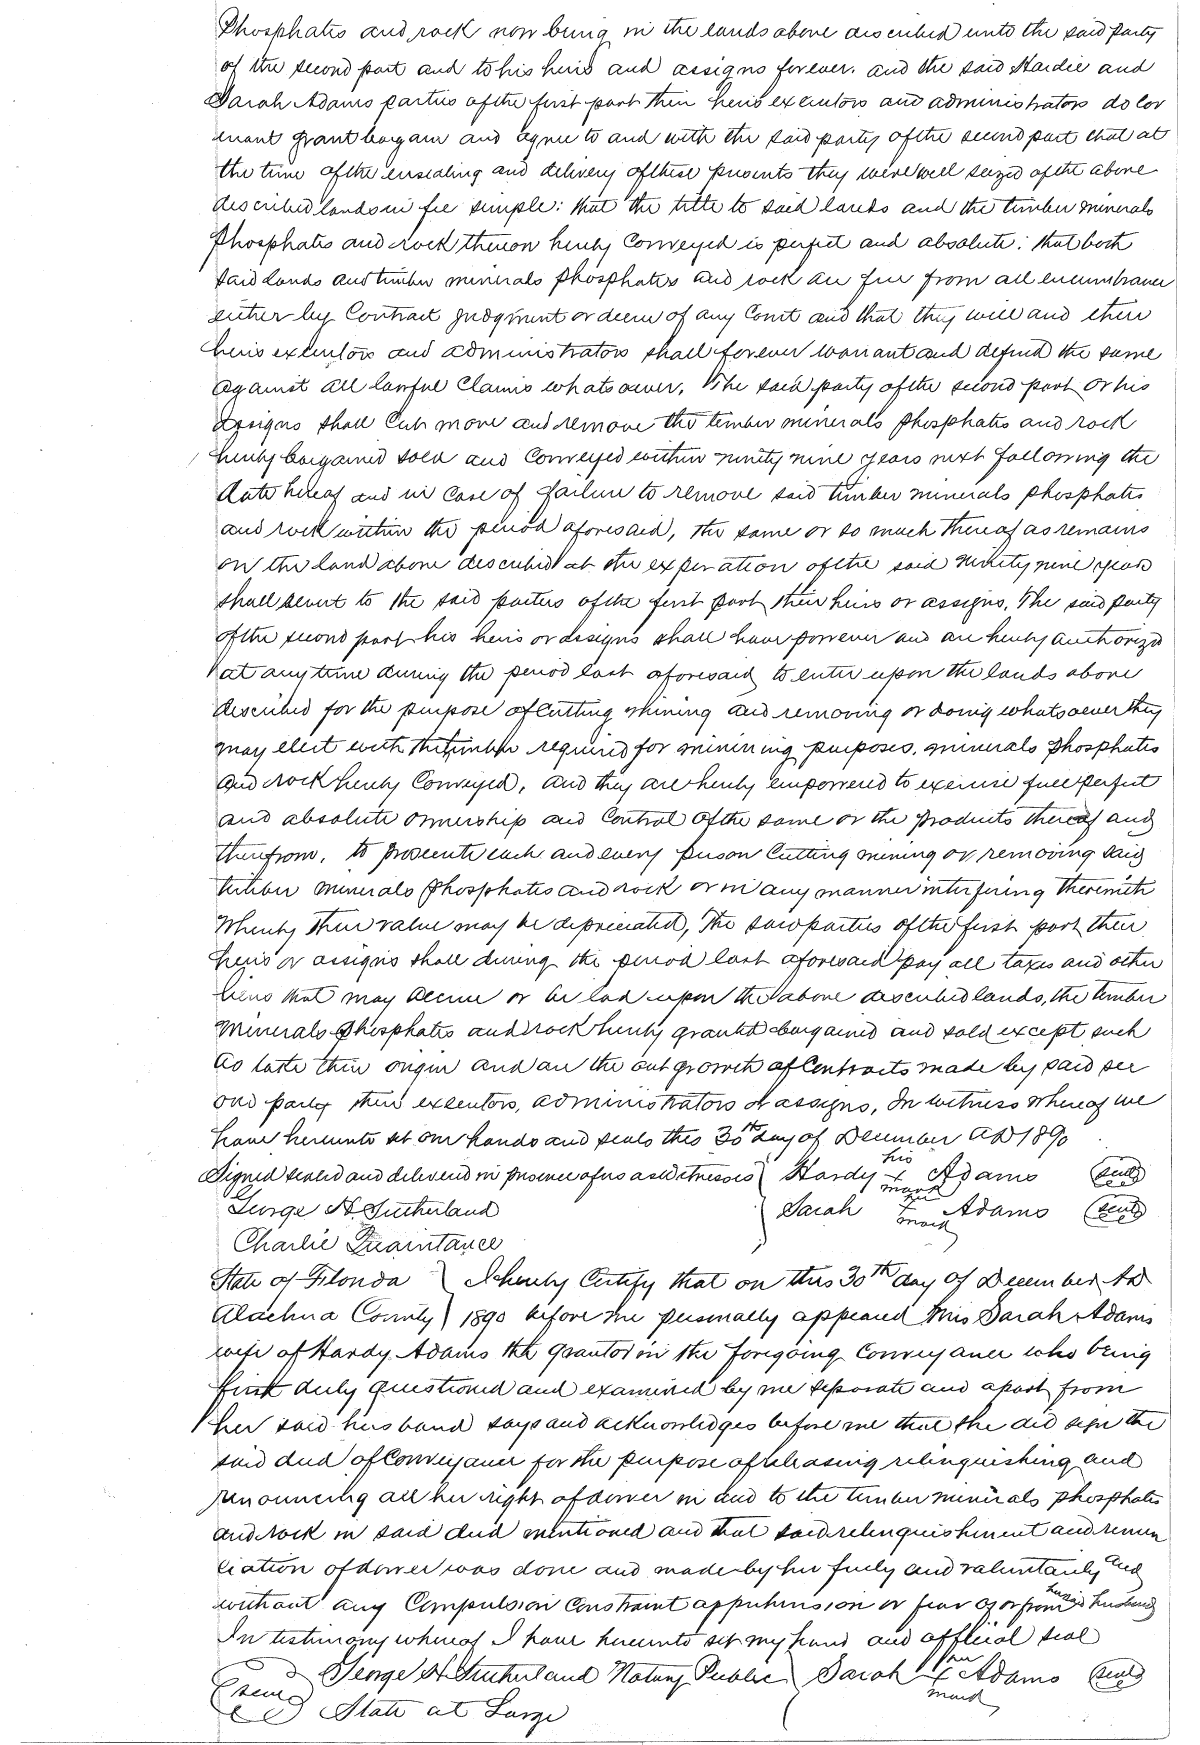 Phosphates and rock now being in the lands above described unto the said party
of the second part and to his heirs and assigns forever. and the said Hardie and
Sarah Adams parties of the first part their heirs executors and administrators do cov
enant grant bargain and agree to and with the said party of the second part that at
the time of the ensealing and delivery of these presents they were well seized of the above
described lands in fee simple: that the title to said lands and the timber minerals
phosphates and rock thereon hereby conveyed is perfect and absolute: that both
said lands and timber minerals phosphates and rock are free from all encumbrance
either by Contract judgment or decree of any Court and that they will and their
heirs executors and administrators shall forever warrant and defend the same
against all lawful Claims whatsoever. The said party of the second part or his
assigns shall Cut move and remove the timber minerals phosphates and rock
hereby bargained sold and Conveyed within ninety nine years next following the
date hereof and in Case of failure to remove said timber minerals phosphates
and rock within the period aforesaid, the same or so much thereof as remains
on the land above described at the expiration of the said ninety nine years
shall revert to the said parties of the first part their heirs or assigns. The said party
of the second part his heirs or assigns shall have power and are hereby authorized
at any time during the period last aforesaid to enter upon the lands above
described for the purpose of Cutting mining and removing or doing whatsoever they
may elect with the timber required for mining purposes, minerals phosphates
and rock hereby Conveyed, and they are hereby empowered to exercise full perfect
and absolute ownership and Control of the same or the products thereof and
therefrom, to prosecute each and every person Cutting mining or removing said
timber minerals phosphates and rock or in any manner interfering therewith
whereby their value may be depreciated, The said parties of the first part their
heirs or assigns shall during the period last aforesaid pay all taxes and other
liens that may accrue or be laid upon the above described lands, the timber
minerals phosphates and rock hereby granted bargained and sold except such
as take their origin and are the out growth of Contracts made by said sec
ond party their executors, administrators or assigns, In witness whereof we
have hereunto set our hands and seals this 30th day of December AD 1890
Signed sealed and delivered in presence of us as witnesses Hardy his x mark Adams (seal)
George H. Sutherland Sarah her x mark Adams (seal)
Charlie Quaintance
State of Florida I hereby Certify that on this 30th day of December AD
Alachua County 1890 before me personally appeared Mrs Sarah Adams
wife of Hardy Adams the grantor in the foregoing Conveyance who being
first duly questioned and examined by me separate and apart from
her said husband says and acknowledges before me that she did sign the
said deed of Conveyance for the purpose of releasing relinquishing and
renouncing all her right of dower in and to the timber minerals phosphates
and rock in said deed mentioned and that said relinquishment and renun
ciation of dower was done and made by her freely and voluntarily and
without any Compulsion Constraint apprehension or fear of or from her said husband
In testimony whereof I have hereunto set my hand and official seal
George H Sutherland Notary Public Sarah her x mark Adams (seal)
(seal) State at Large